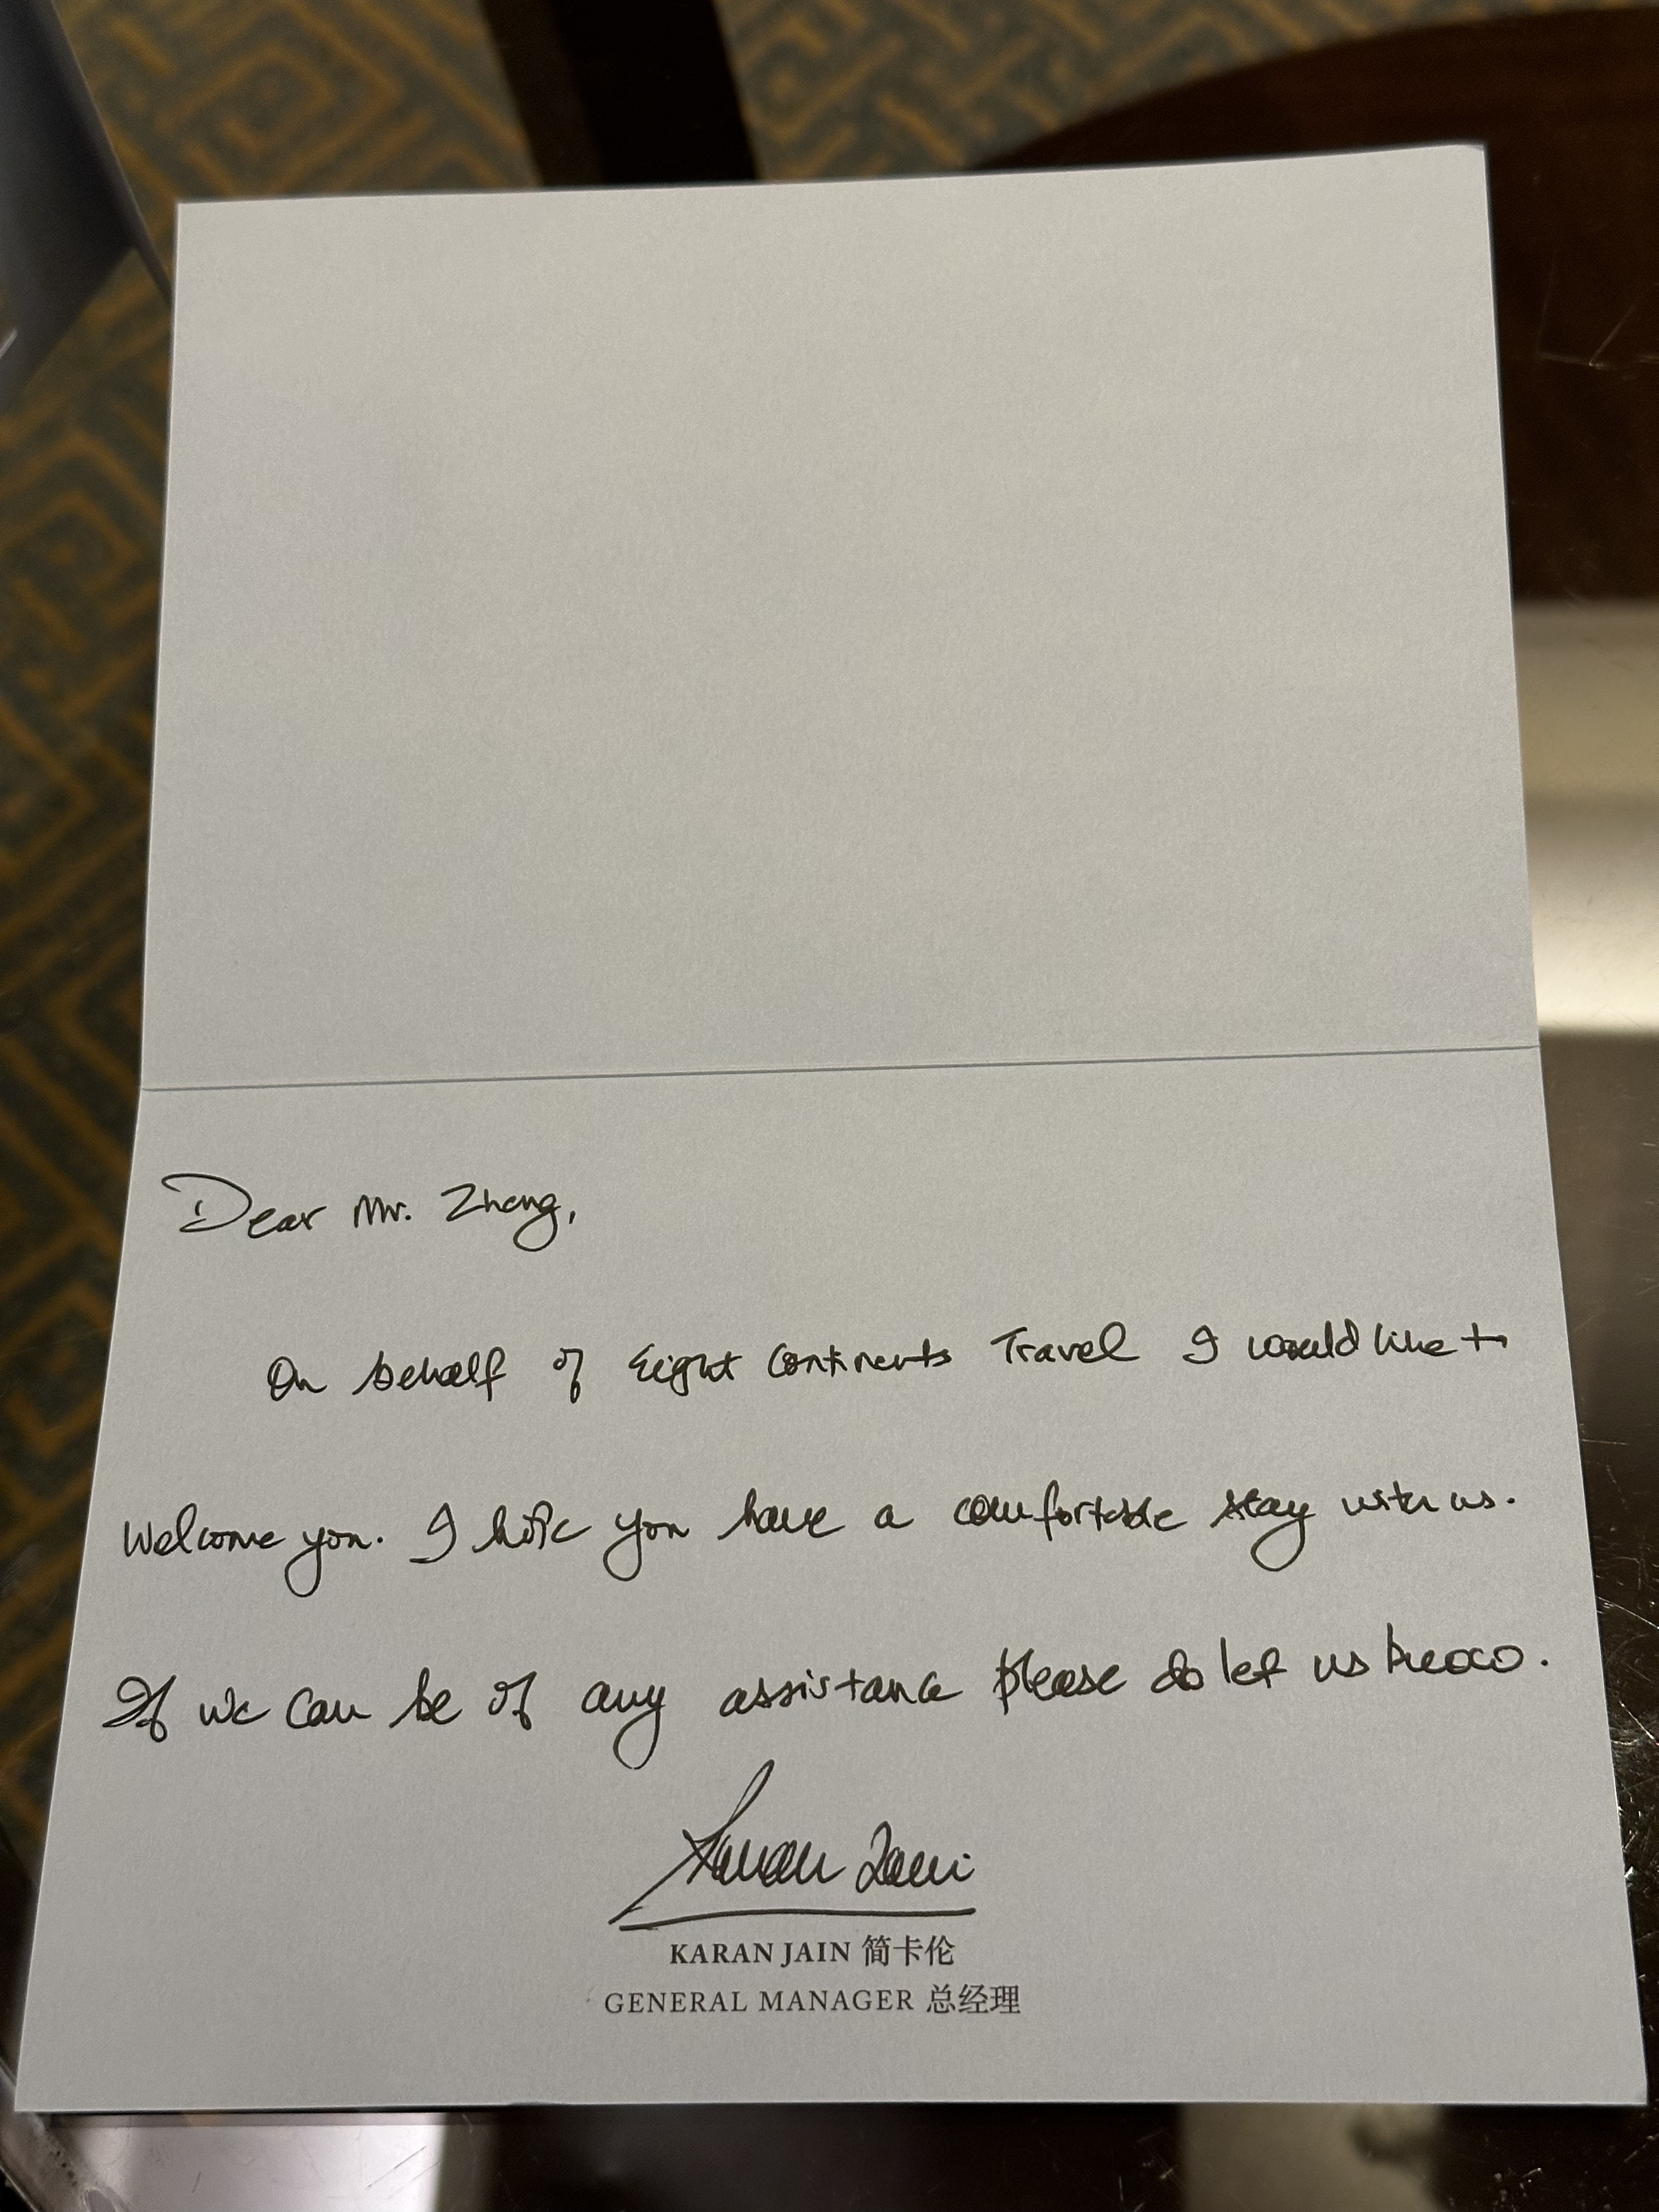 Dear Mr. Zheng,
On behalf of Eight Continents Travel I would like to
Welcome you. I hope you have a comfortable stay with us.
If we can be of any assistance please do let us know.
Karan Jain
KARAN JAIN 简卡伦
GENERAL MANAGER 总经理